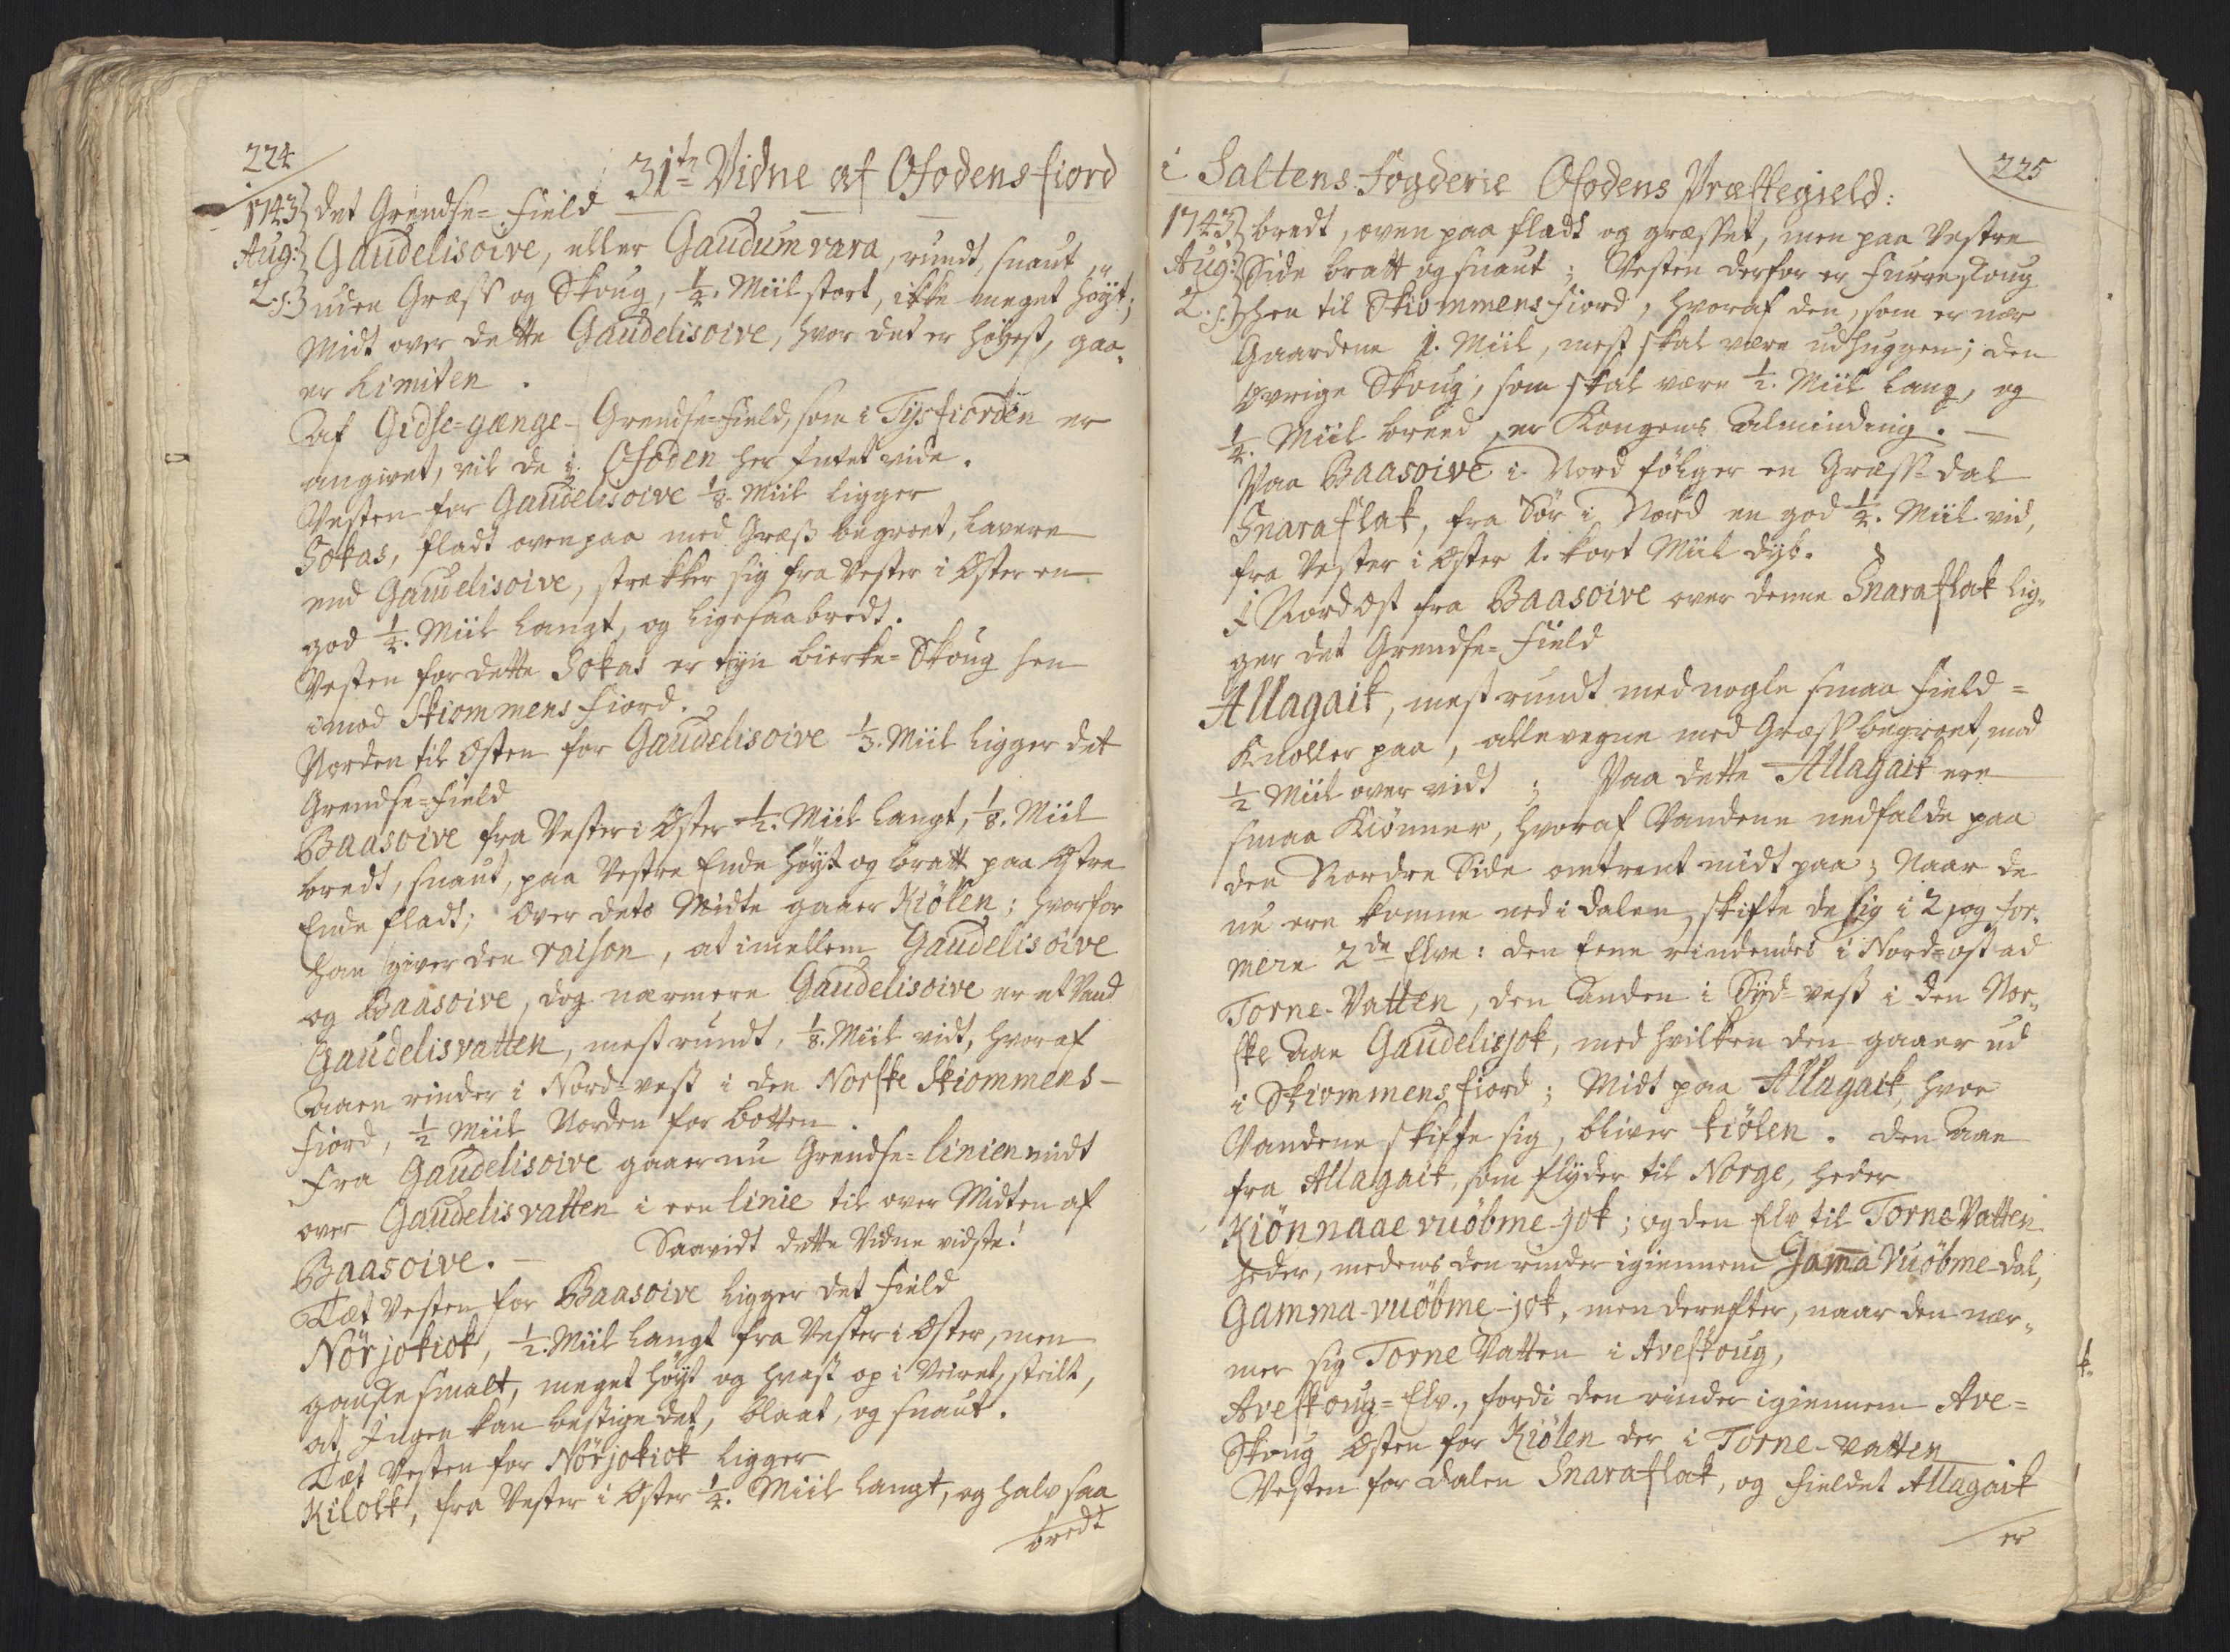 224
31te Vidne af Ofodens fiord
1743 det Grendse-Field
Aug: Gaudelisoive, eller Gaudum vara, rundt, snaut,
2. s. uden Græss og Skoug, 1/2. Miil stort, ikke meget høyt;
Midt over dette Gaudelisoive, hvor det er høyest, gaa-
er Limiten.
Af Gidse-gænge-Grendse-Field, som i Tysfiorden er
angivet, vil de i Ofoden her intet vide.
Vesten for Gaudelisoive 1/8. Miil ligger
Sokas, fladt oven paa med Græss begroet, lavere
end Gaudelisoive, strekker sig fra Vester i Øster en
god 1/2. Miil langt, og ligesaa bredt.
Vesten for dette Sokas er tyn birke-Skoug hen
imod Skiommens fiord.
Norden til Østen for Gaudelisoive 1/3. Miil ligger det
Grendse-Field
Baasoive fra Vester i Øster 1/2. Miil langt, 1/8. Miil
bredt, snaut, paa Vestre Ende høyt og bratt paa Østre
Ende fladt; Over dets Midte gaaer Kiölen; hvorfor
han giver den raison, at imellem Gaudelisoive
og Baasoive, dog nærmere Gaudelisoive er et Vand
Gaudelisvatten, mest rundt, 1/8. Miil vidt, hvoraf
Aaen rinder i Nord-vest i den Norske Skiommens-
fiord, 1/2 Miil Norden for botten.
Fra Gaudelisoive gaaer nu Grendse-linien midt
over Gaudelisvatten i een linie til over Midten af
Baasoive. — Saavidt dette Vidne vidste!
Tæt Vesten for Baasoive ligger det Field
Nörjokiok, 1/2. Miil langt fra Vester i Øster, men
ganske smalt, meget høyt og hvast op i Veiret, steilt,
at Ingen kan bestige det, blaat, og snaut.
Tæt Vesten for Nörjokiok ligger
Kilolk, fra Vester i Øster 1/2. Miil langt, og halv saa
bredt
i Saltens Fogderie Ofodens Præstegield:
225
1743 bredt, oven paa fladt og græsset, men paa Vestre
Aug: Side bratt og snaut; Vesten derfor er furreskoug
2. s. hen til Skiommens fiord, hvoraf den, som er nær
Gaardene 1. Miil, mest skal være udhuggen; den
øvrige Skoug, som skal være 1/2. Miil lang, og
1/4. Miil breed, er Kongens Alminding. —
Paa Baasoive i Nord følger en Græss-dal
Snaraflak, fra Sör i Nord en god 1/2. Miil vid,
fra Vester i Øster 1. kort Miil dyb.
I Nordost fra Baasoive over denne Snaraflak lig-
ger det Grendse-Field
Allagaik, mest rundt med nogle smaa Field-
Knoller paa, allevegne med Græss begroet, mod
1/2 Miil over vidt; Paa dette Allagaik ere
smaa Kiönner, hvoraf Vandene nedfalde paa
den Nordre Side omtrent midt paa; Naar de
nu ere komne ned i dalen, skifte de sig i 2 og for-
mere 2de Elve: den Eene rindendes i Nord-ost ad
Torne-Vatten, den Anden i Syd-vest i den Nor-
ske Aae Gaudelisjok, med hvilken den gaaer ud
i Skiommens fiord; Midt paa Allagaik, hvor
Vandene skifte sig, bliver kiölen. Den Aae
fra Allagaik, som flyder til Norge, heder
Kiönnaae vuöbme-jok; og den Elv til Torne Vatten
heder, medens den rinder igiennem Gam̄a Vuöbme-dal,
Gamma-vuöbme-jok, men derefter, naar den nær-
mer sig Torne Vatten i Aveskoug,
Aveskoug-Elv., fordi den rinder igiennem Ave-
Skoug Østen for Kiölen der i Torne-vatten
Vesten for dalen Snaraflak, og Fieldet Allagaik
er